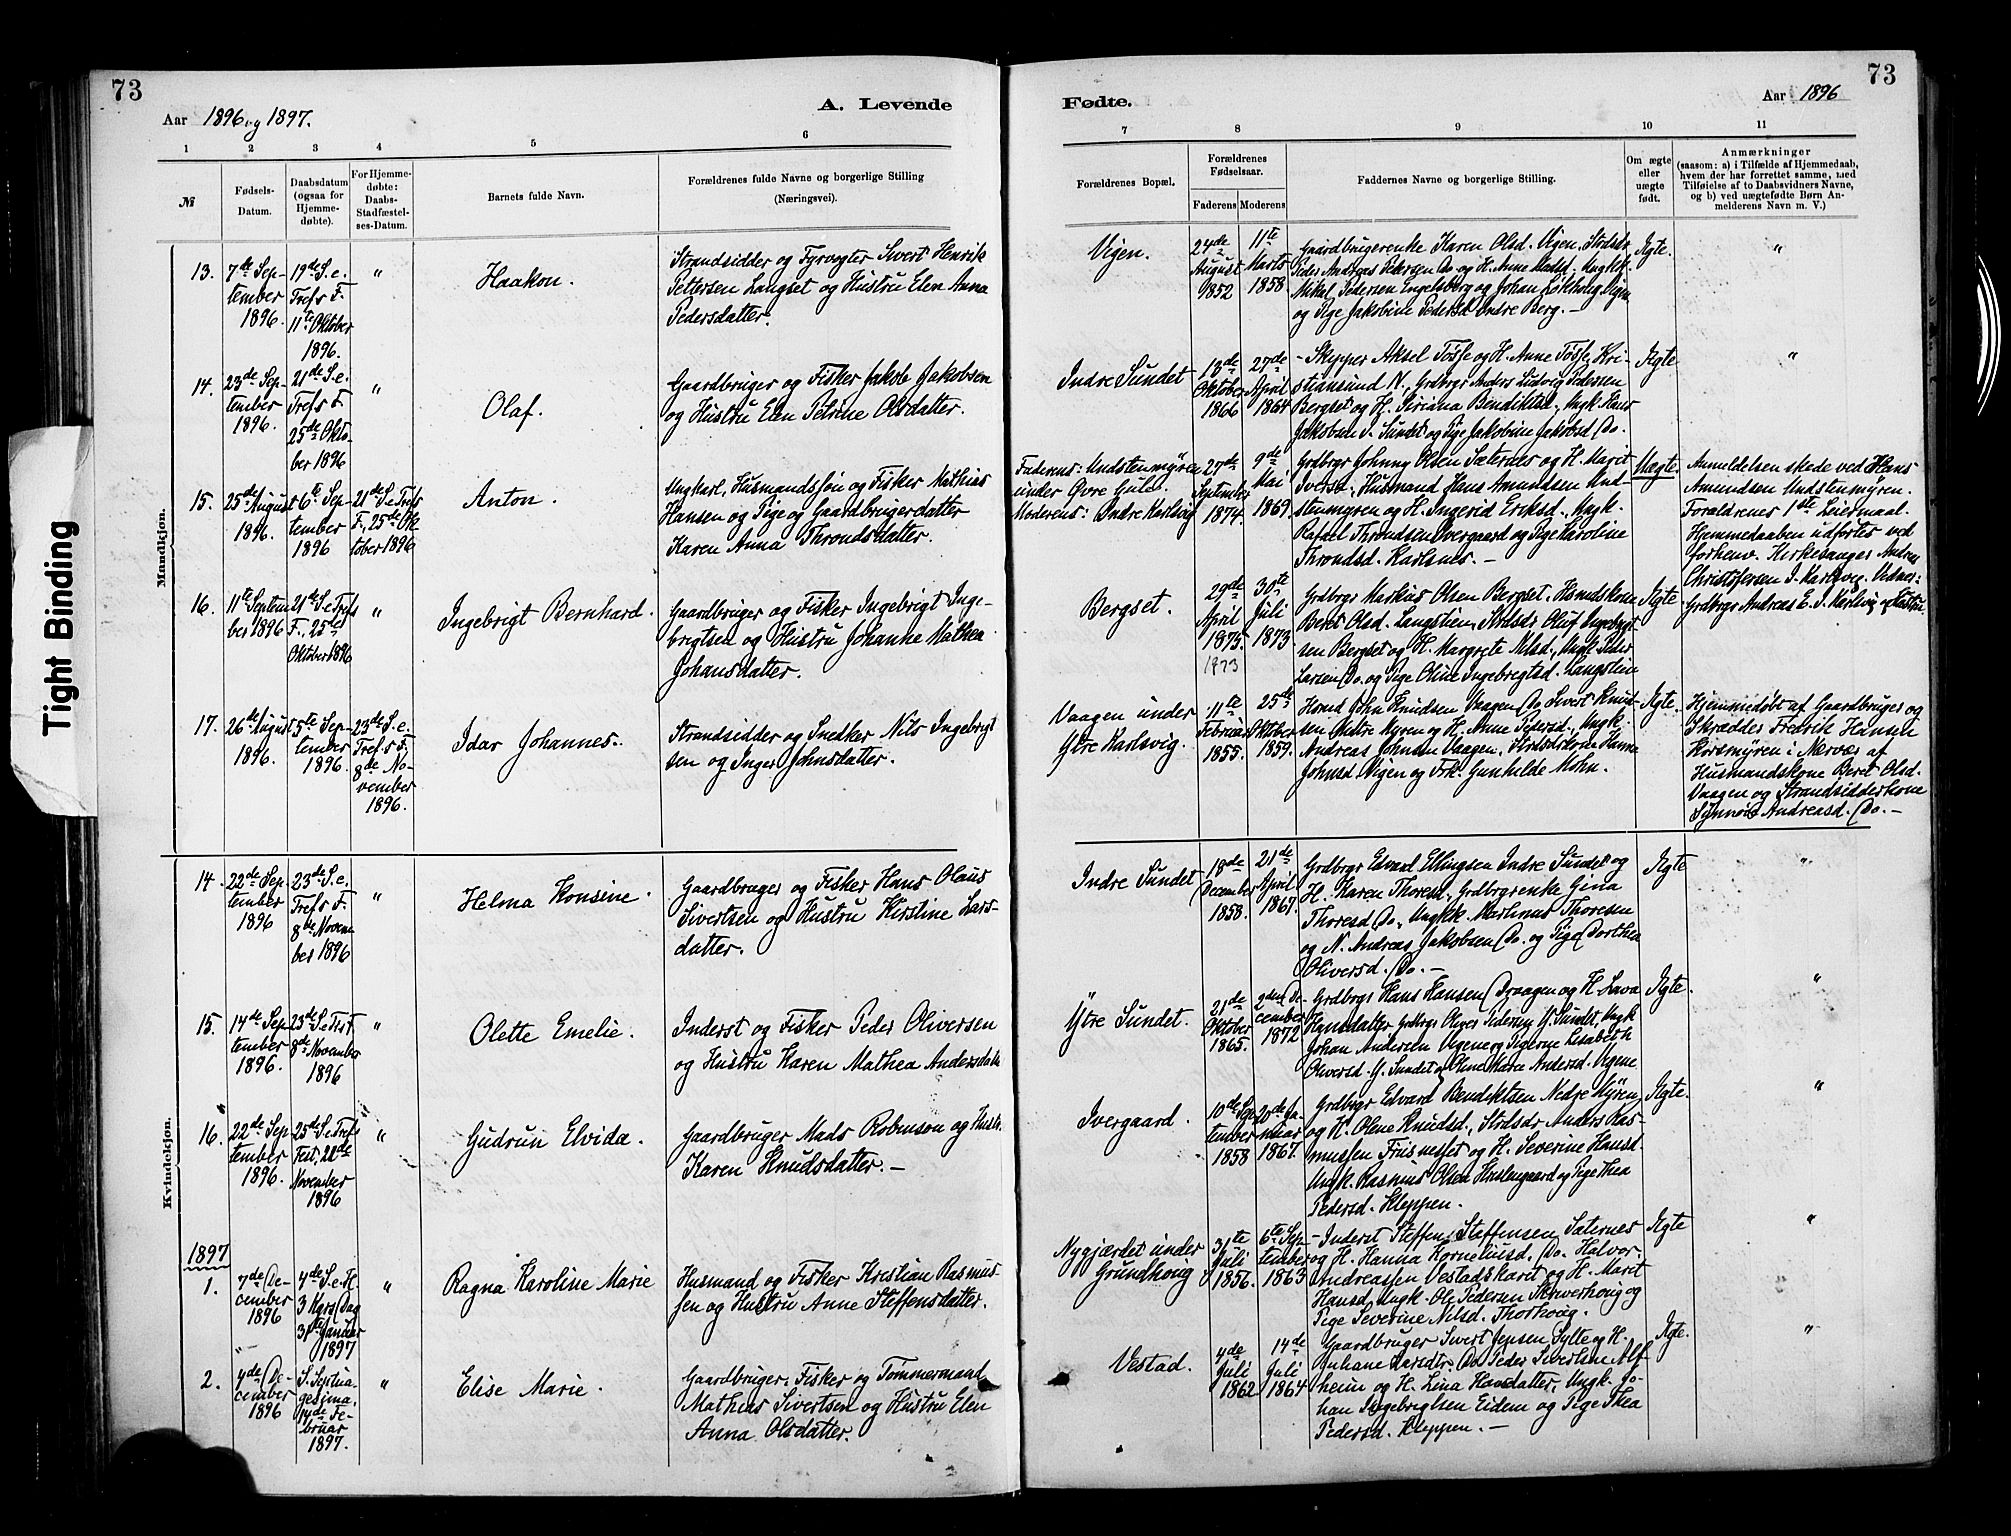 73
Aar 1896 og 1897.
A. Levende
1 2 3 4 5 6
№
Fødsels-
Datum.
Daabsdatum
(ogsaa for
Hjemme-
døbte).
For Hjemme-
døbte:
Daabs-
Stadfæstel-
ses-Datum.
Barnets fulde Navn.
Forældrenes fulde Navne og borgerlige Stilling
(Næringsvei).
Mandkjøn.
13.
7de Sep-
tember
1896.
19de S. e.
Tref s F.
11te Oktober
1896.
"
Haakon.
Strandsidder og Fyrvogter Sivert Henrik
Pettersen Langset og Hustru Elen Anna
Pedersdatter.
14.
23de Sep-
tember
1896.
21de S. e.
Tref s F.
25de Okto-
ber 1896
"
Olaf.
Gaardbruger og Fisker Jakob Jakobsen
og Hustru Elen Petrine Olsdatter.
15.
25de August
1896.
6te Sep-
tember
1896
21de S. e Trefs
F., 25de Ok
tober 1896
Anton.
Ungkarl, Husmandssøn og Fisker Mathias
Hansen og Pige og Gaardbrugerdatter
Karen Anna Throndsdatter.
16.
11te Septem
ber 1896
21de S. e Trefs
F., 25de
Oktober 1896
"
Ingebrigt Bernhard.
Gaardbruger og Fisker Ingebrigt Inge-
brigtsen og Hustru Johanne Mathea
Johansdatter.
17.
26de August
1896.
5te Sep-
tember
1896.
23de S. e.
Tref s F,
8de No-
vember
1896.
Idar Johannes.
Strandsidder og Snedker Nils Ingebrigt
sen og Inger Johnsdatter.
Kvindekjøn.
14.
22de Sep
tember
1896
23de S. e.
Tref s F.
8de Novem
ber 1896
"
Helma Konsine.
Gaardbruger og Fisker Hans Olaus
Sivertsen og Hustru Kirstine Lars-
datter.
15.
14de Sep-
tember
1896.
23de S. e Tref
8de November
1896
"
Olette Emelie.
Inderst og Fisker Peder Oliversen
og Hustru Karen Mathea Andersdatt
16.
22de Sep
tember
1896.
25de S. e Tref s
Fest,
November
1896
"
Gudrun Elvida.
Gaardbruger Mads Robinson og Hustr.
Karen Knudsdatter. —
1897
1.
7de De-
cember
1896
4de S. e. H.
3 Kgrs Dag
31te Januar
1897
"
Ragna Karoline Marie
Husmand og Fisker Kristian Rasmus-
sen og Hustru Anne Steffensdatter.
2.
4de De-
cember
1896
S. Septua-
gesima,
14de Fe-
bruar
1897.
"
Elise Marie.
Gaardbruger, Fisker og Tømmermand
Mathias Sivertsen og Hustru Elen
Anna Olsdatter.
Tight Binding
73
Fødte.
Aar 1896
7 8 9 10 11
Forældrenes Bopæl.
Forældrenes
Fødselsaar.
Faderens Moderens
Faddernes Navne og borgerlige Stilling.
Om ægte
eller
uægte
født.
Anmærkninger
(saasom: a) i Tilfælde af Hjemmedaab,
hvem der har forrettet samme, med
Tilføielse af to Daabsvidners Navne,
og b) ved uægtefødte Børn An-
melderens Navn m. V.)
Vigen.
24de
August
1852
11te
Marts
1858
Gaardbrugerenke Karen Olsd. Vigen, Strdsdr
Peder Andreas Pedersen Do og H. Anne Madsd. Ungk.
Mikal Pedersen Engelsberg og Johan Vigen
og Pige Jakobine Pedersd. Indre Berg. —
Ægte.
"
Indre Sundet
18de
Oktober
1866
27de
April
1864
- Skipper Aksel Tøsse og H. Anne Tøsse, Kri-
stiansund N., Grdbrgr Anders Ludvig Pedersen
Bergset og H. Siriana Bendiktsd., Ungk. Hans
Jakobsen I. Sundet og Pige Jakobine Jakobsd Do.
Ægte
"
Faderens: Undstenmyren
under Øvre Gule.
Moderens: Indre Karlsvig
27de
September
1874.
9de
Mai
1869.
Grdbrgr Johnny Olsen Sæternes og H. Marit
Iversd., Husmand Hans Amundsen Und-
stenmyren og H. Ingerid Eriksd., Ungk.
Rafael Throndsen Overgaard og Pige Karoline
Throndsd. Karlsnes. —
Uægte
Anmeldelsen skede ved Hans
Amundsen Undstenmyren.
Forældrenes 1ste Leiermaal.
Hjemmedaaben udførtes ved
forhenv. Kirkesanger Andreas
Christofersen I. Karlsvig. Vidner:
Grdbrgr Andreas E. I. Karlsvig og Hustru.
Bergset.
29de
April
1875.
1873
30te
Juli
1873.
Grdbrgr Markus Olsen Bergset, Husmdskone
Beret Olsd. Langstien, Strdsdr Oluf Ingebrigt
sen Bergset og H. Margrete Nilsd., Ungk. Peder
Larsen Do. og Pige Oline Ingebrigtsd. Langstien
Ægte.
Vaagen under
Ytre Karlsvig.
11te
Februar
1855.
25de
Oktber
1859.
Husmd John Knudsen Vaagen, Do Sivert Knud-
sen Indre Myren og H. Anne Pedersd., Ungk.
Andreas Johnsen Vaagen, Strdsdrkone Hanna
Johnsd. Vigen og Frk. Gunhilde Mohn.
Ægte.
Hjemmedøbt af Gaardbruger og
Skrædder Fredrik Hansen
Korsmyren i Nærvær af
Husmandskone Beret Olsd.
Vaagen og Strandsidderkone
Synnøve Andreasd. Do. —
Indre Sundet
18de
December
1858.
21de
April
1867.
Grdbrgr Edvard Ellingsen Indre Sundet og
H. Karen Thoresd., Grdbrgrenke Gina
Thoresd. Do., Ungk. Martinus Thoresen
og N. Andreas Jakobsen Do. og Pige Dorthea
Oliversd. Do. —
Ægte
"
Ytre Sundet.
21de
Oktober
1865.
2den De-
cember
1872
Grdbrgr Hans Hansen Dyvaagen og H. Lava
Hansdatter, Grdbrgr Oliver Pedersen Y. Sundet, Ungk
Johan Andersen Vigene og Pigerne Lisabeth
Oliversd. Y. Sundet og Oline Marie Andersd. Vigene
Ægte.
"
Ivergaard.
10de Sep
tember
1858
20de Ja-
nuar
1867.
Grdbrgr Edvard Bendiktsen Nedre Myren
og H. Olene Knudsd., Strdsdr Anders Ras-
mussen Frisneset og H. Severine Hansd.
Ungk. Rasmus Olsen Huslengaard og Pige Thea
Pedersd. Kleppen.
Ægte.
"
Nygjærdet under
Grundhoug
31te
Juli
1856.
6te Sep-
tember
1863
- Inderst Steffen Steffensen Sæternes
og H. Hanna Korneliusd. Do. Halvor
Andreassen Vestadskaret og H. Marit
Hansd., Ungk. Ole Pedersen Skriverhoug og
Pige Severine Nilsd. Thorhoug.
Ægte
"
Vestad.
4de
Juli
1862
14de
Juli
1864
Gaardbruger Sivert Jensen Sylte og H.
Juliane Larsdtr. Do Peder Sivertsen Alf
heim og H. Lina Hansdatter, Ungk. Jo-
han Ingebrigtsen Eidem og Pige Thea
Pedersd. Kleppen. —
Ægte.
"